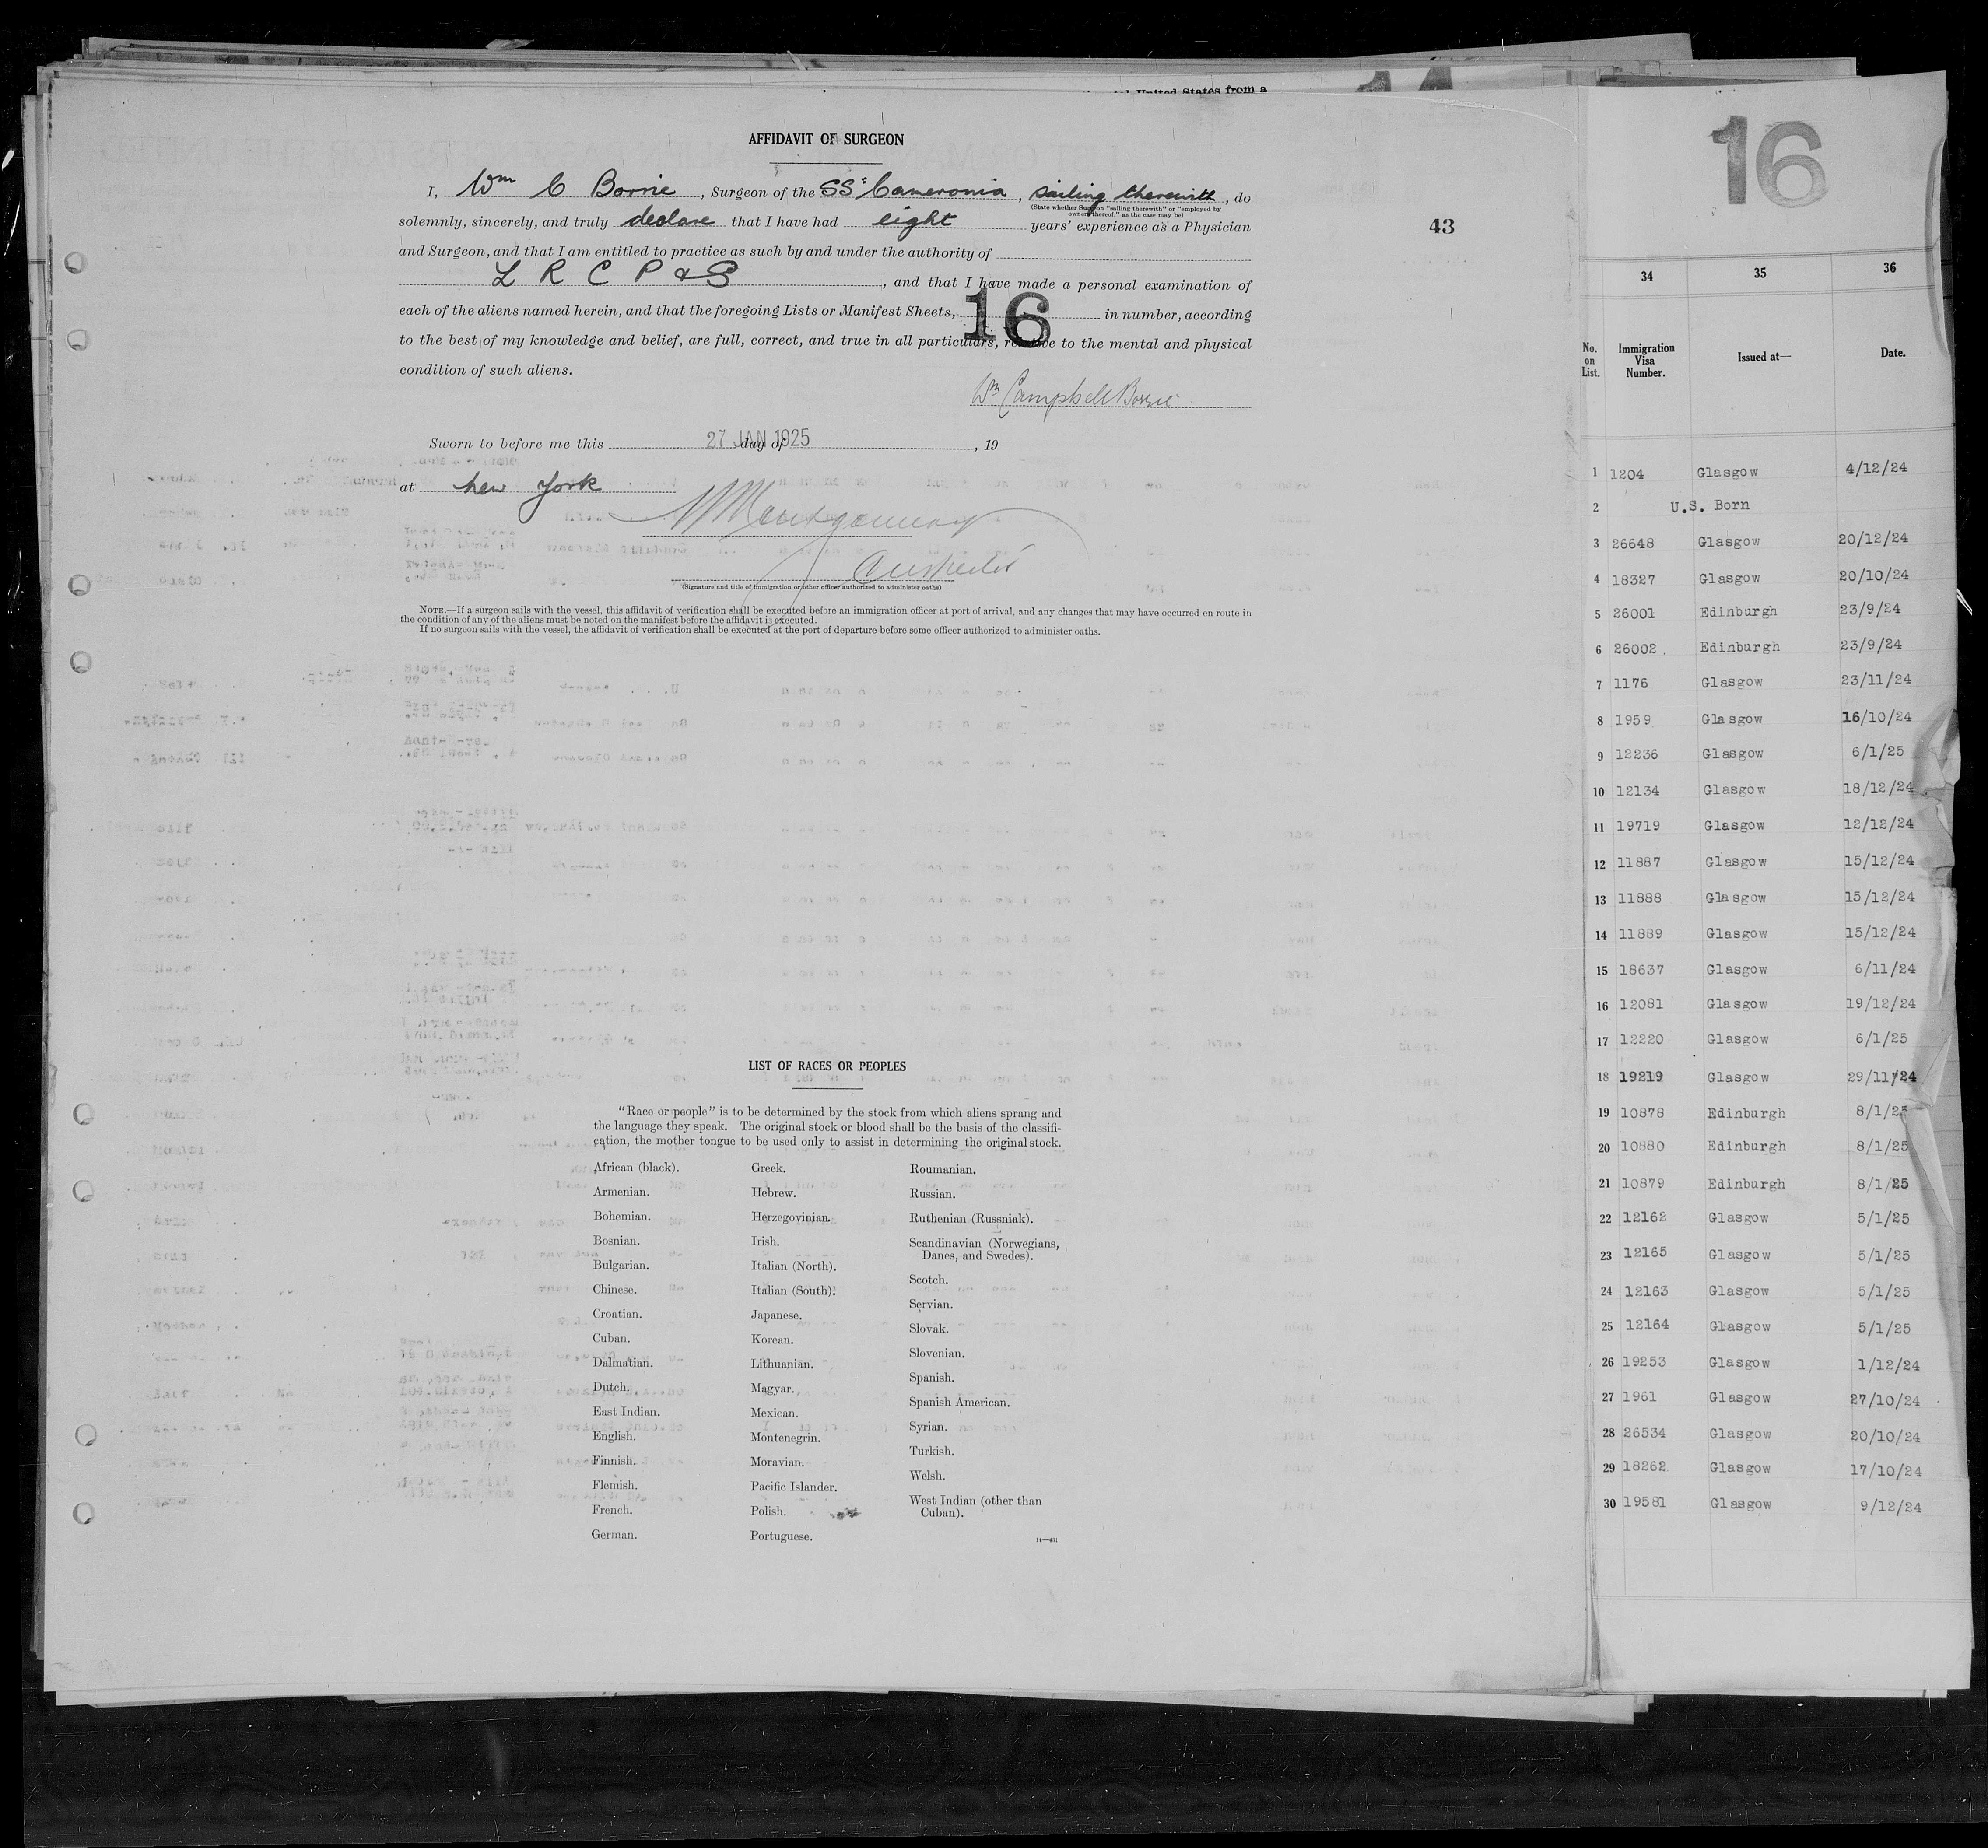 United States from a
AFFIDAVIT OF SURGEON
I, Wm C Borrie, Surgeon of the SS: Cameronia, sailing therewith, do
(State whether Surgeon "sailing therewith" or "employed by
owners thereof," as the case may be)
solemnly, sincerely, and truly declare that I have had eight years' experience as a Physician
and Surgeon, and that I am entitled to practice as such by and under the authority of
L R C P & S, and that I have made a personal examination of
each of the aliens named herein, and that the foregoing Lists or Manifest Sheets, 16 in number, according
to the best of my knowledge and belief, are full, correct, and true in all particulars, relative to the mental and physical
condition of such aliens.
Wm Campbell Borrie
Sworn to before me this 27 JAN 1925 day of , 19
at New York
Montgomery
(Signature and title of immigration or other officer authorized to administer oaths)
NOTE.—If a surgeon sails with the vessel, this affidavit of verification shall be executed before an immigration officer at port of arrival, and any changes that may have occurred en route in
the condition of any of the aliens must be noted on the manifest before the affidavit is executed.
If no surgeon sails with the vessel, the affidavit of verification shall be executed at the port of departure before some officer authorized to administer oaths.
43
LIST OF RACES OR PEOPLES
"Race or people" is to be determined by the stock from which aliens sprang and
the language they speak. The original stock or blood shall be the basis of the classifi-
cation, the mother tongue to be used only to assist in determining the original stock.
African (black).
Armenian.
Bohemian.
Bosnian.
Bulgarian.
Chinese.
Croatian.
Cuban.
Dalmatian.
Dutch.
East Indian.
English.
Finnish.
Flemish.
French.
German.
Greek.
Hebrew.
Herzegovinian.
Irish.
Italian (North).
Italian (South).
Japanese.
Korean.
Lithuanian.
Magyar.
Mexican.
Montenegrin.
Moravian.
Pacific Islander.
Polish.
Portuguese.
Roumanian.
Russian.
Ruthenian (Russniak).
Scandinavian (Norwegians,
Danes, and Swedes).
Scotch.
Servian.
Slovak.
Slovenian.
Spanish.
Spanish American.
Syrian.
Turkish.
Welsh.
West Indian (other than
Cuban).
16
34 35 36
No. on List. Immigration Visa Number. Issued at— Date.
1 1204 Glasgow 4/12/24
2 U.S. Born
3 26648 Glasgow 20/12/24
4 18327 Glasgow 20/10/24
5 26001 Edinburgh 23/9/24
6 26002 Edinburgh 23/9/24
7 1176 Glasgow 23/11/24
8 1959 Glasgow 16/10/24
9 12236 Glasgow 6/1/25
10 12134 Glasgow 18/12/24
11 19719 Glasgow 12/12/24
12 11887 Glasgow 15/12/24
13 11888 Glasgow 15/12/24
14 11889 Glasgow 15/12/24
15 18637 Glasgow 6/11/24
16 12081 Glasgow 19/12/24
17 12220 Glasgow 6/1/25
18 19219 Glasgow 29/11/24
19 10878 Edinburgh 8/1/25
20 10880 Edinburgh 8/1/25
21 10879 Edinburgh 8/1/25
22 12162 Glasgow 5/1/25
23 12165 Glasgow 5/1/25
24 12163 Glasgow 5/1/25
25 12164 Glasgow 5/1/25
26 19253 Glasgow 1/12/24
27 1961 Glasgow 27/10/24
28 26534 Glasgow 20/10/24
29 18262 Glasgow 17/10/24
30 19581 Glasgow 9/12/24